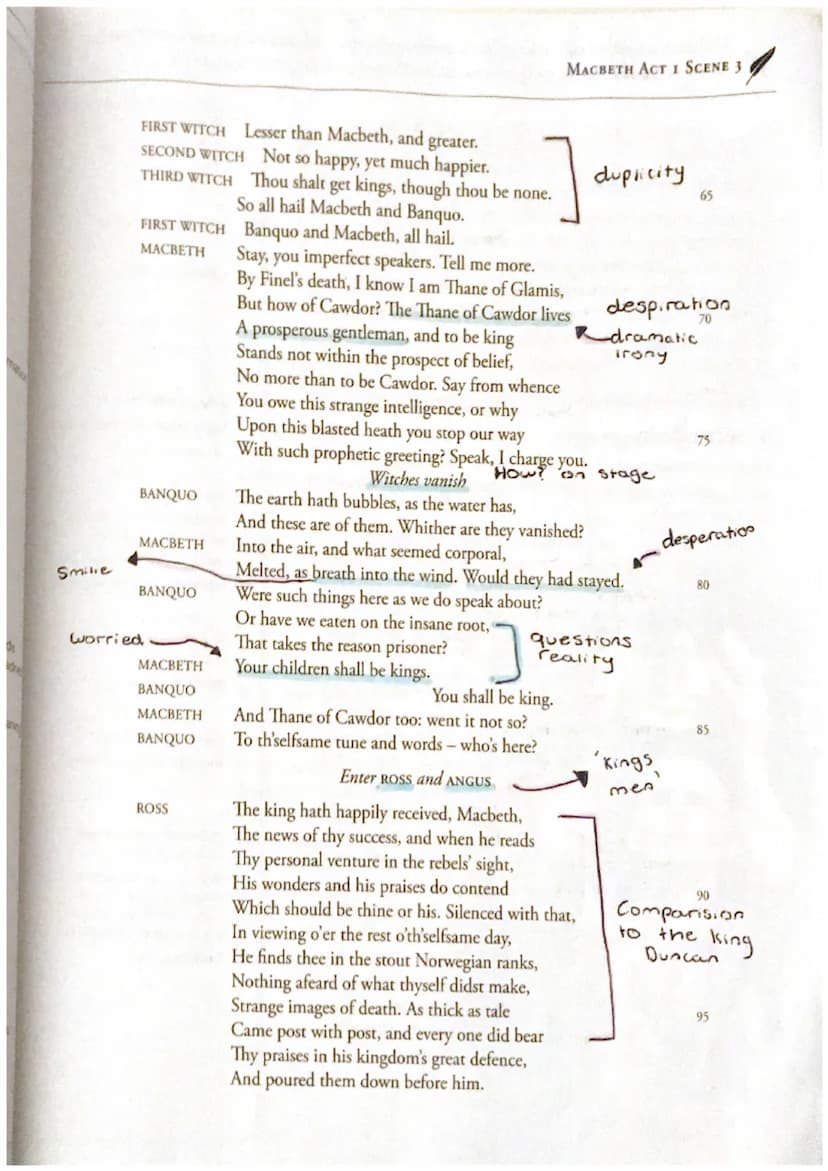 MACBETH ACT 1 SCENE 3
FIRST WITCH Lesser than Macbeth, and greater.
SECOND WITCH Not so happy, yet much happier.
duplicity
THIRD WITCH Thou shalt get kings, though thou be none.
65
So all hail Macbeth and Banquo.
FIRST WITCH Banquo and Macbeth, all hail.
MACBETH Stay, you imperfect speakers. Tell me more.
By Finel's death, I know I am Thane of Glamis,
But how of Cawdor? The Thane of Cawdor lives
despiration
70
A prosperous gentleman, and to be king
dramatic
irony
Stands not within the prospect of belief,
No more than to be Cawdor. Say from whence
You owe this strange intelligence, or why
Upon this blasted heath you stop our way
75
With such prophetic greeting? Speak, I charge you.
Witches vanish
How? on stage
BANQUO The earth hath bubbles, as the water has,
And these are of them. Whither are they vanished?
MACBETH Into the air, and what seemed corporal,
desperation
Smilie
Melted, as breath into the wind. Would they had stayed.
80
BANQUO Were such things here as we do speak about?
Or have we eaten on the insane root,
worried
That takes the reason prisoner?
questions
reality
MACBETH Your children shall be kings.
BANQUO You shall be king.
MACBETH And Thane of Cawdor too: went it not so?
85
BANQUO To th'selfsame tune and words – who's here?
Enter ROSS and ANGUS
'Kings
men'
ROSS The king hath happily received, Macbeth,
The news of thy success, and when he reads
Thy personal venture in the rebels' sight,
His wonders and his praises do contend
90
Which should be thine or his. Silenced with that,
Comparision
to the King
Duncan
In viewing o'er the rest o'th'selfsame day,
He finds thee in the stout Norwegian ranks,
Nothing afeard of what thyself didst make,
Strange images of death. As thick as tale
95
Came post with post, and every one did bear
Thy praises in his kingdom's great defence,
And poured them down before him.